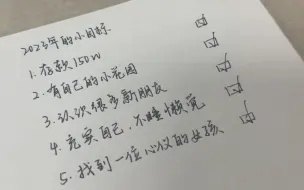 2023年的小目标
1. 存款150W
2. 有自己的小花园
3. 认识很多新朋友
4. 充实自己，不睡懒觉
5. 找到一位心仪的女孩